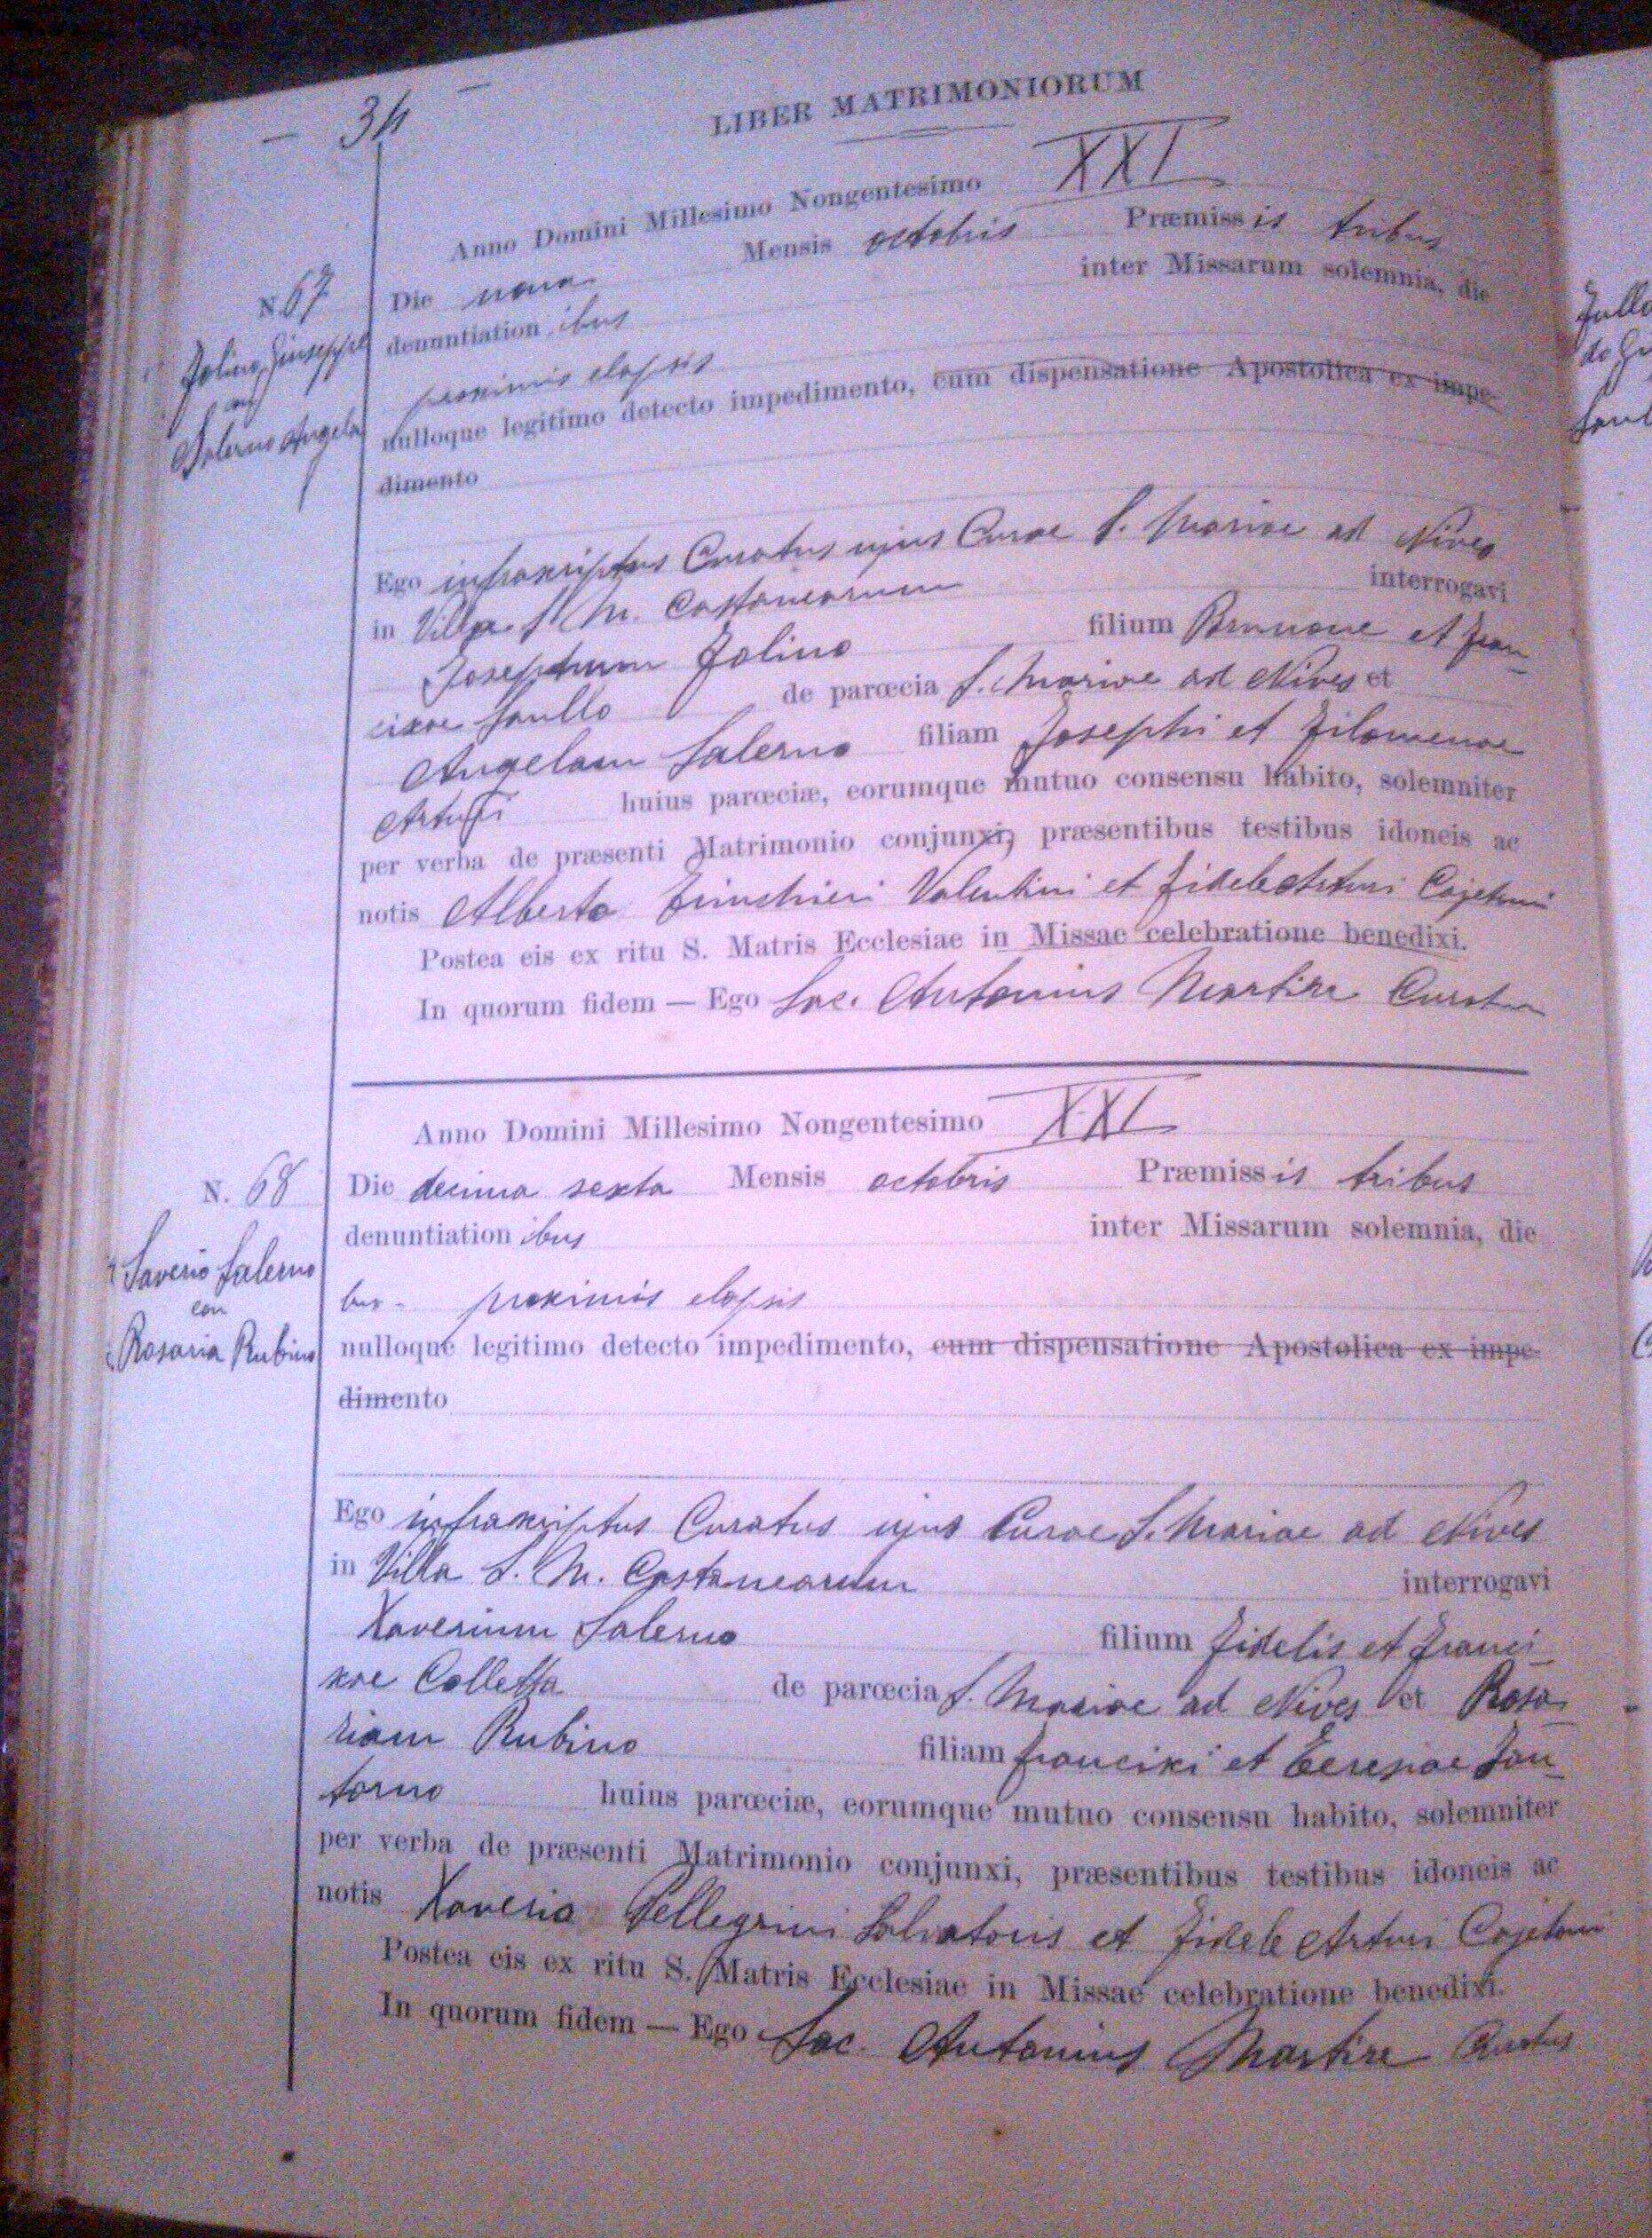 — 34 —
LIBER MATRIMONIORUM
Anno Domini Millesimo Nongentesimo XXI
N. 67
Die nona Mensis octobris Præmissis tribus
denuntiationibus inter Missarum solemnia, die
Giuseppe
con
Salerno Angela
proximis elapsis
nulloque legitimo detecto impedimento, cum dispensatione Apostolica ex impe-
dimento
Ego infrascriptus Curatus ujus Curae S. Mariae ad Nives
in Villa S. M. Castanearum interrogavi
Josephum Folino filium Brunone et Fran-
cixae Saullo de parœcia S. Mariae ad Nives et
Angelam Salerno filiam Josephi et Filomenae
Arturi huius parœciæ, eorumque mutuo consensu habito, solemniter
per verba de præsenti Matrimonio conjunxi, præsentibus testibus idoneis ac
notis Alberto Valentini et Fidele Arturi Cajetani
Postea eis ex ritu S. Matris Ecclesiae in Missae celebratione benedixi.
In quorum fidem — Ego Sac. Antonius Martire Curatus
Anno Domini Millesimo Nongentesimo XXI
N. 68
Die decima sexta Mensis octobris Præmissis tribus
denuntiationibus inter Missarum solemnia, die
Saverio Salerno
con
Rosaria Rubino
bus - proximis elapsis
nulloque legitimo detecto impedimento, cum dispensatione Apostolica ex impe-
dimento
Ego infrascriptus Curatus ujus Curae S. Mariae ad Nives
in Villa S. M. Castanearum interrogavi
Xaverium Salerno filium Fidelis et Franci-
xae Colletta de parœcia S. Mariae ad Nives et Rosa-
riam Rubino filiam Francixi et Teresiae Fan-
torno huius parœciæ, eorumque mutuo consensu habito, solemniter
per verba de præsenti Matrimonio conjunxi, præsentibus testibus idoneis ac
notis Xaverio Pellegrini Salvatoris et Fidele Arturi Cajetani
Postea eis ex ritu S. Matris Ecclesiae in Missae celebratione benedixi.
In quorum fidem — Ego Sac. Antonius Martire Curatus